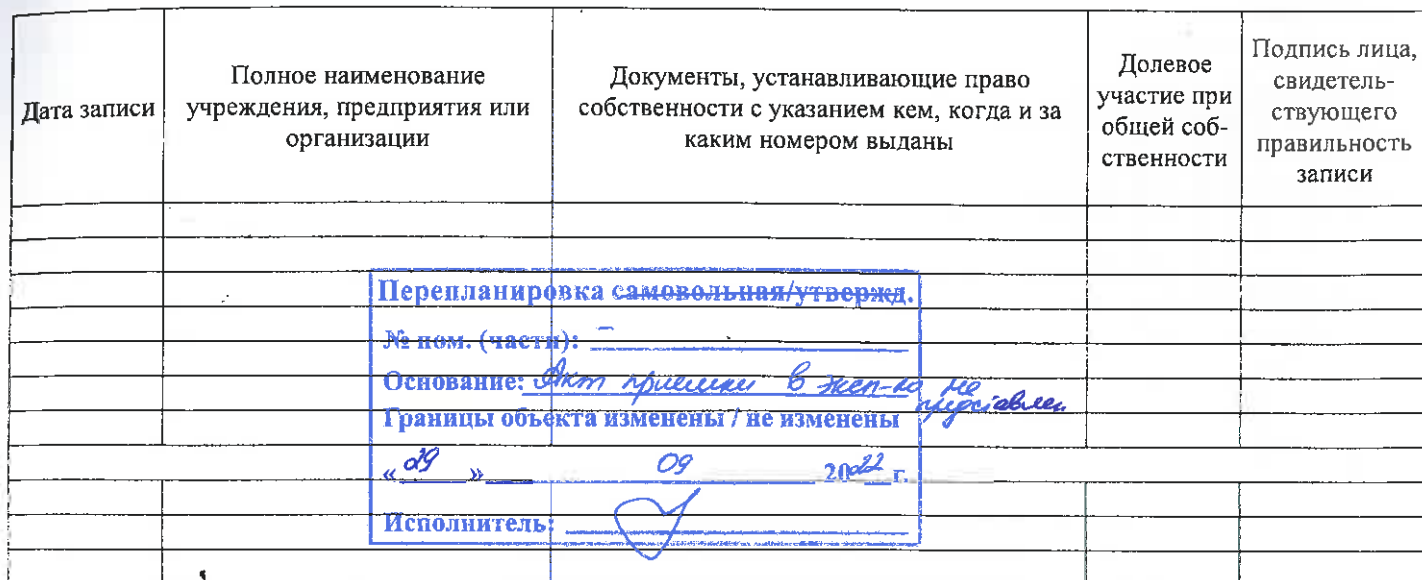 Дата записи
Полное наименование
учреждения, предприятия или
организации
Документы, устанавливающие право
собственности с указанием кем, когда и за
каким номером выданы
Долевое
участие при
общей соб-
ственности
Подпись лица,
свидетель-
ствующего
правильность
записи
Перепланировка самовольная/утвержд.
№ пом. (части): –
Основание: Акт приемки в эксп-ю не
представлен
Границы объекта изменены / не изменены
« 29 » 09 2022 г.
Исполнитель: